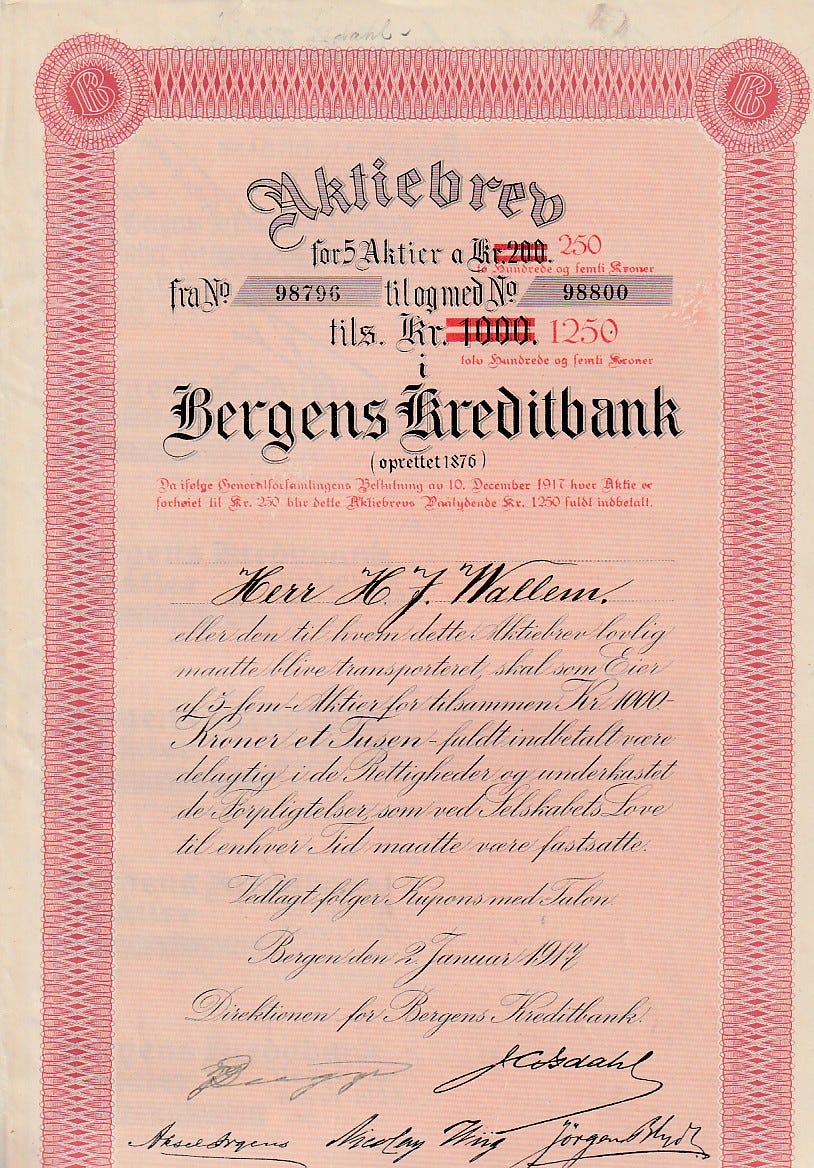 Aktiebrev
for 5 Aktier a Kr. 200. 250
to Hundrede og femti Kroner
fra No 98796 til og med No 98800
tils. Kr. 1000. 1250
tolv Hundrede og femti Kroner
i
Bergens Kreditbank
(oprettet 1876)
Da ifølge Generalforsamlingens Beslutning av 10. December 1917 hver Aktie er
forhøiet til Kr. 250 blir dette Aktiebrevs Paalydende Kr. 1250 fuldt indbetalt.
Herr H. J. Wallem.
eller den til hvem dette Aktiebrev lovlig
maatte blive transporteret, skal som Eier
af 5-fem-Aktier for tilsammen Kr 1000-
Kroner et Tusen-fuldt indbetalt være
delagtig i de Rettigheder og underkastet
de Forpligtelser, som ved Selskabets Love
til enhver Tid maatte være fastsatte.
Vedlagt følger Kupons med Talon.
Bergen den 2. Januar 1917
Direktionen for Bergens Kreditbank.
Nicolay Wiig